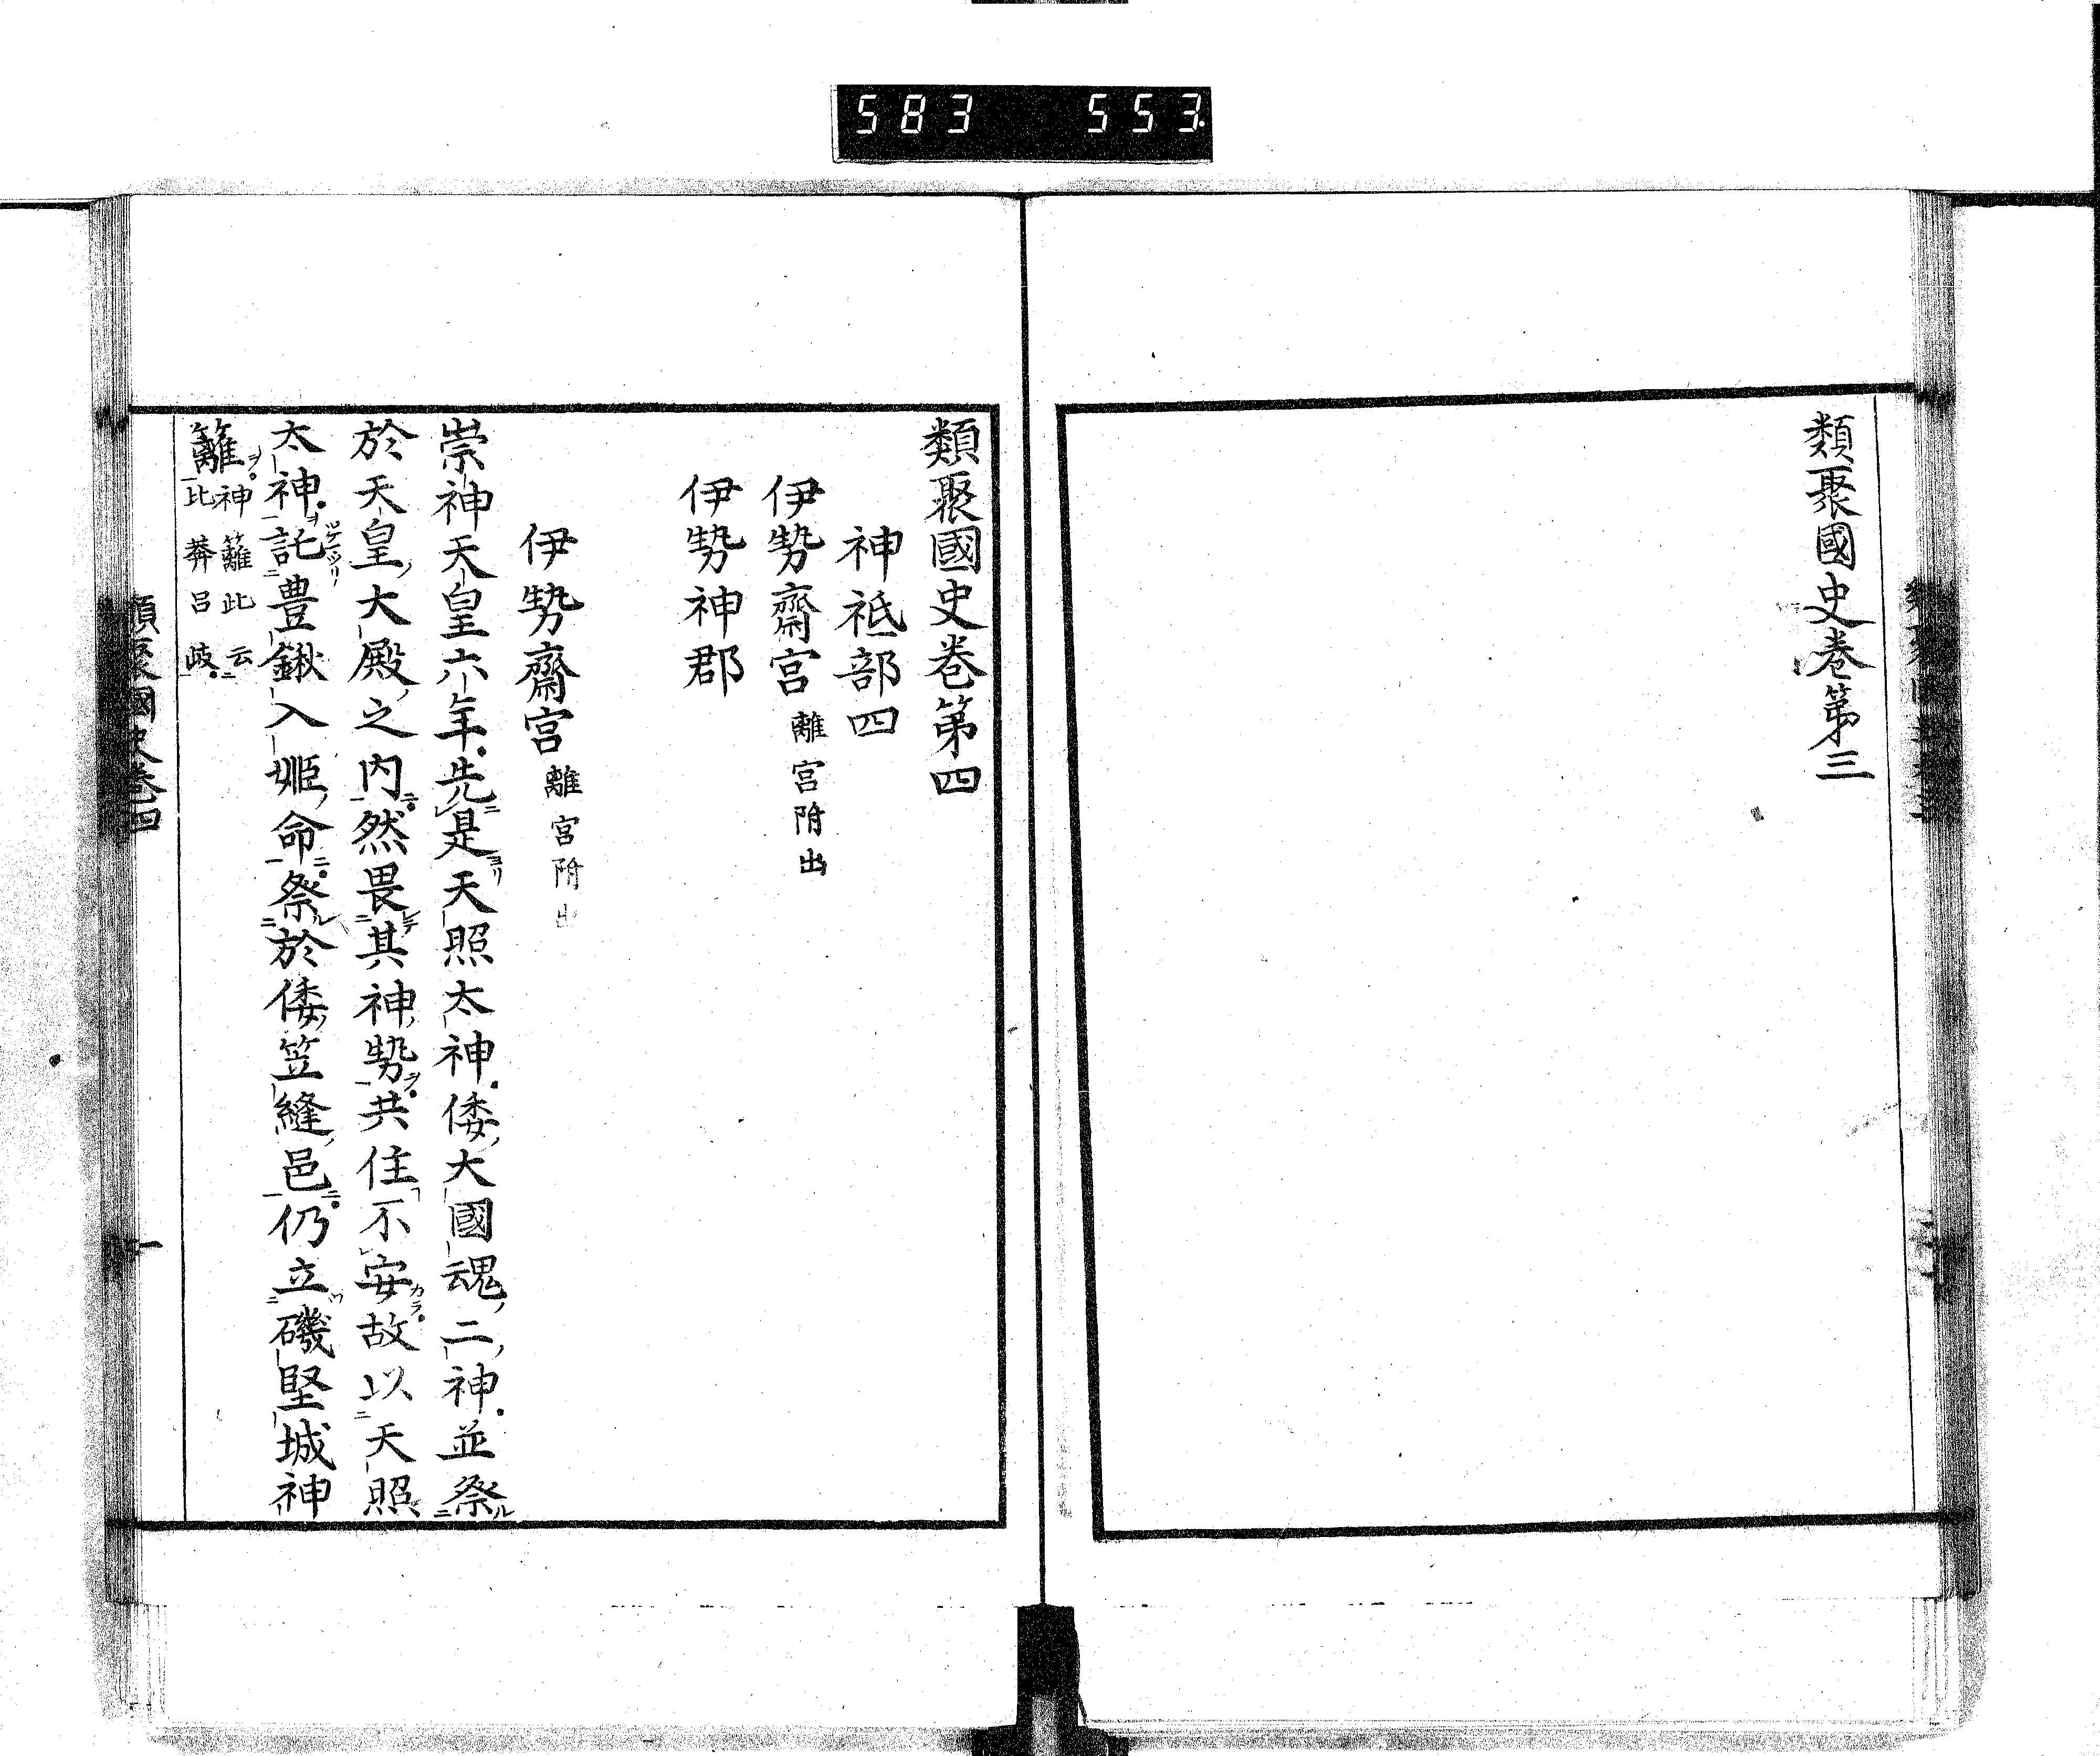 583 553
類聚國史卷第三
類聚國史卷第四
神祗部四
伊勢齋宮 離宮附出
伊勢神郡
伊勢齋宮 離宮附出
崇神天皇六年先是天照太神倭大國魂二神並祭
於天皇大殿之内然畏其神勢共住不安故以天照
太神託豊鍬入姫命祭於倭笠縫邑仍立磯堅城神
籬 神籬此云
比莽呂岐
類聚國史卷四
一